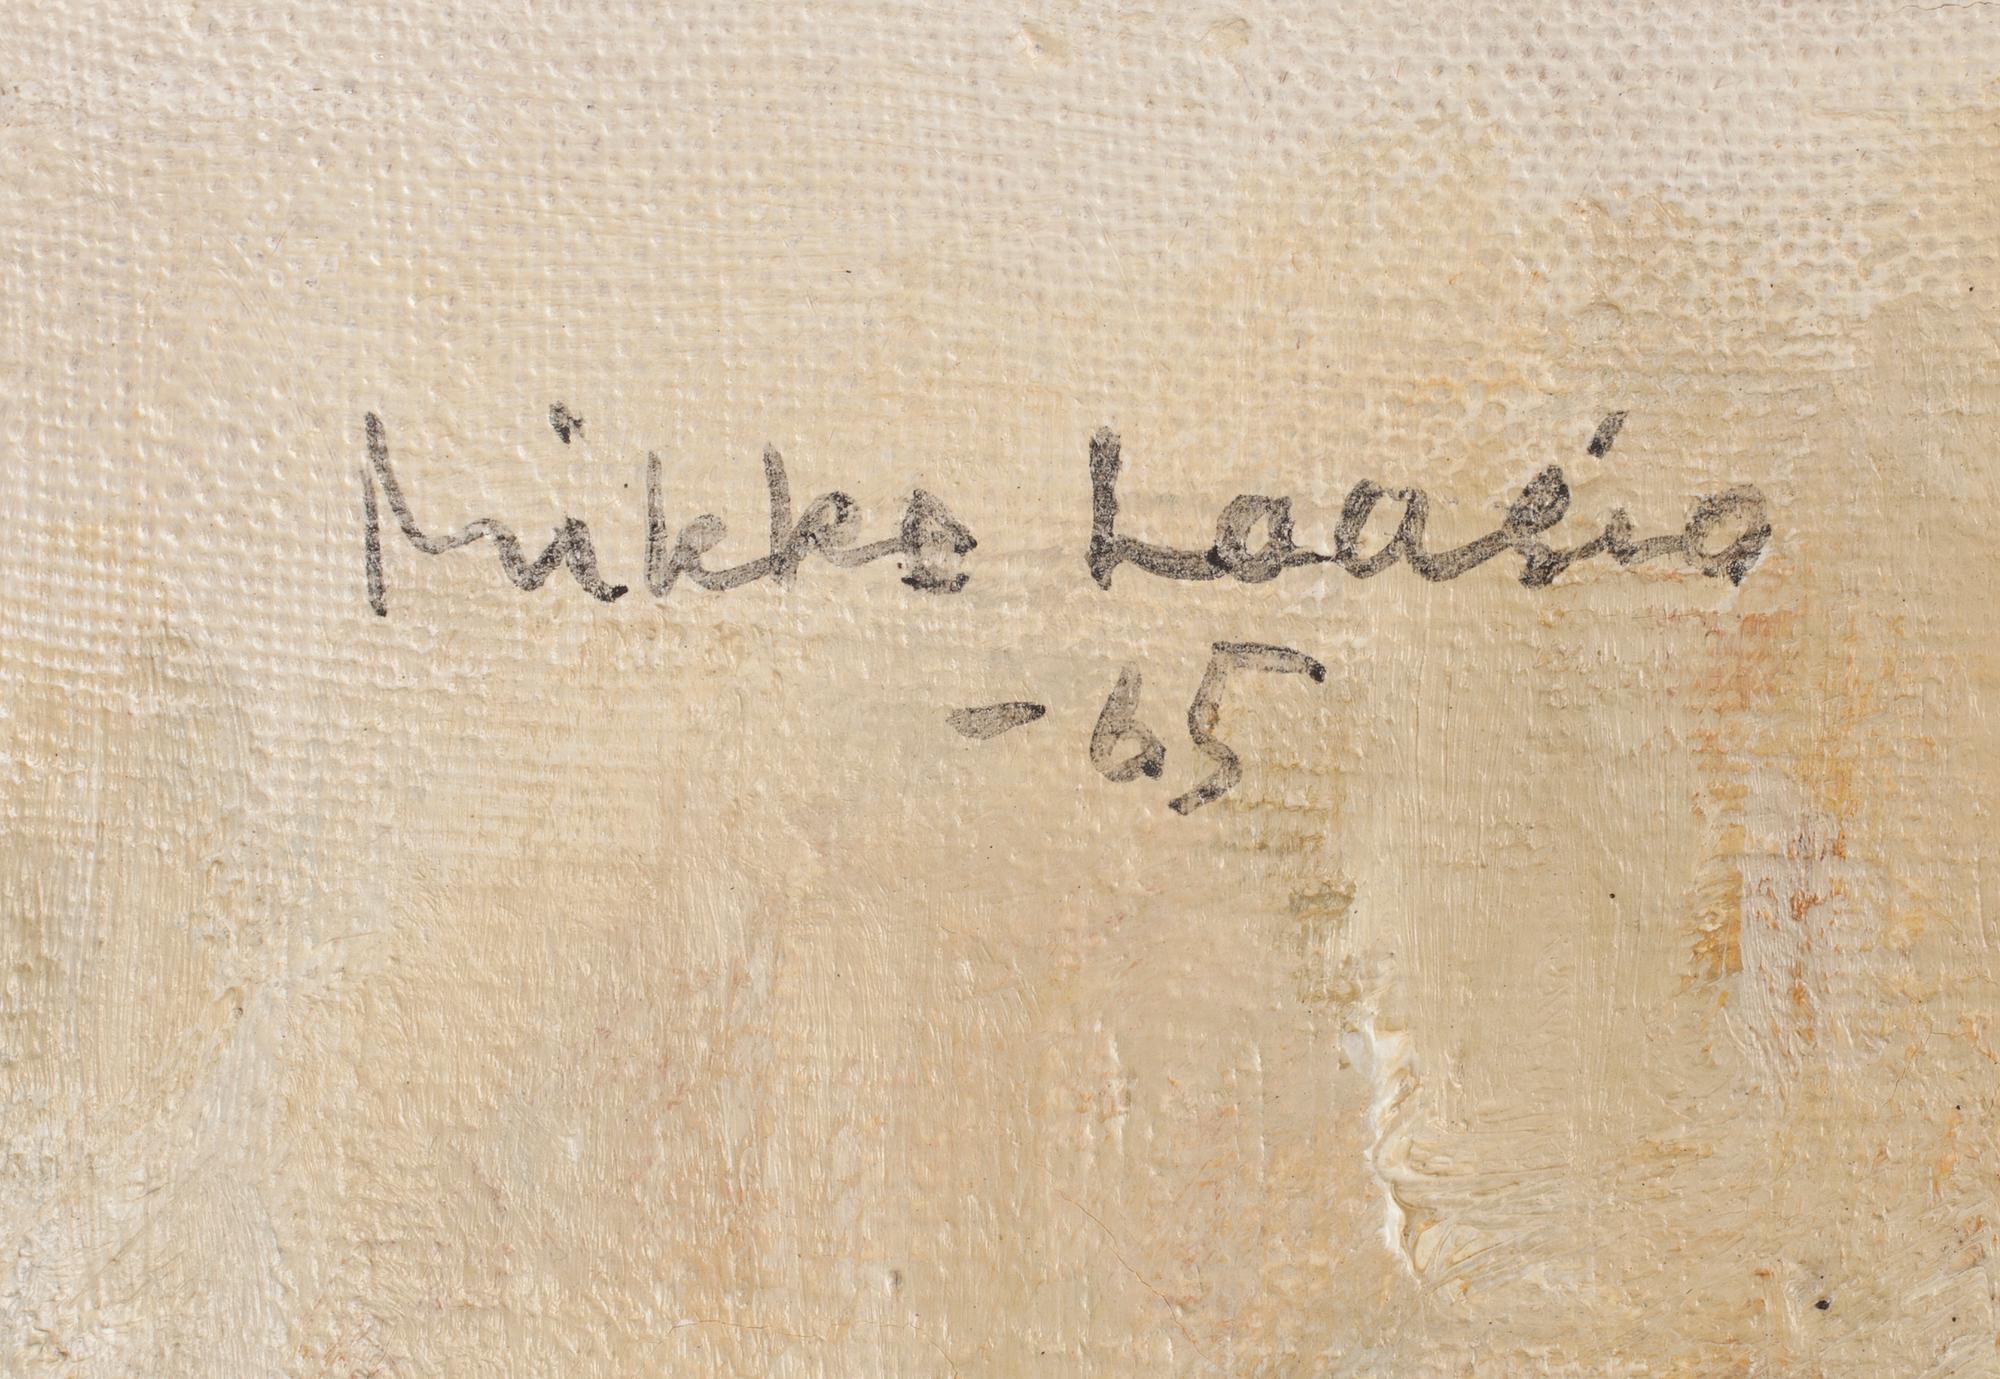 Mikko Laasio
-65